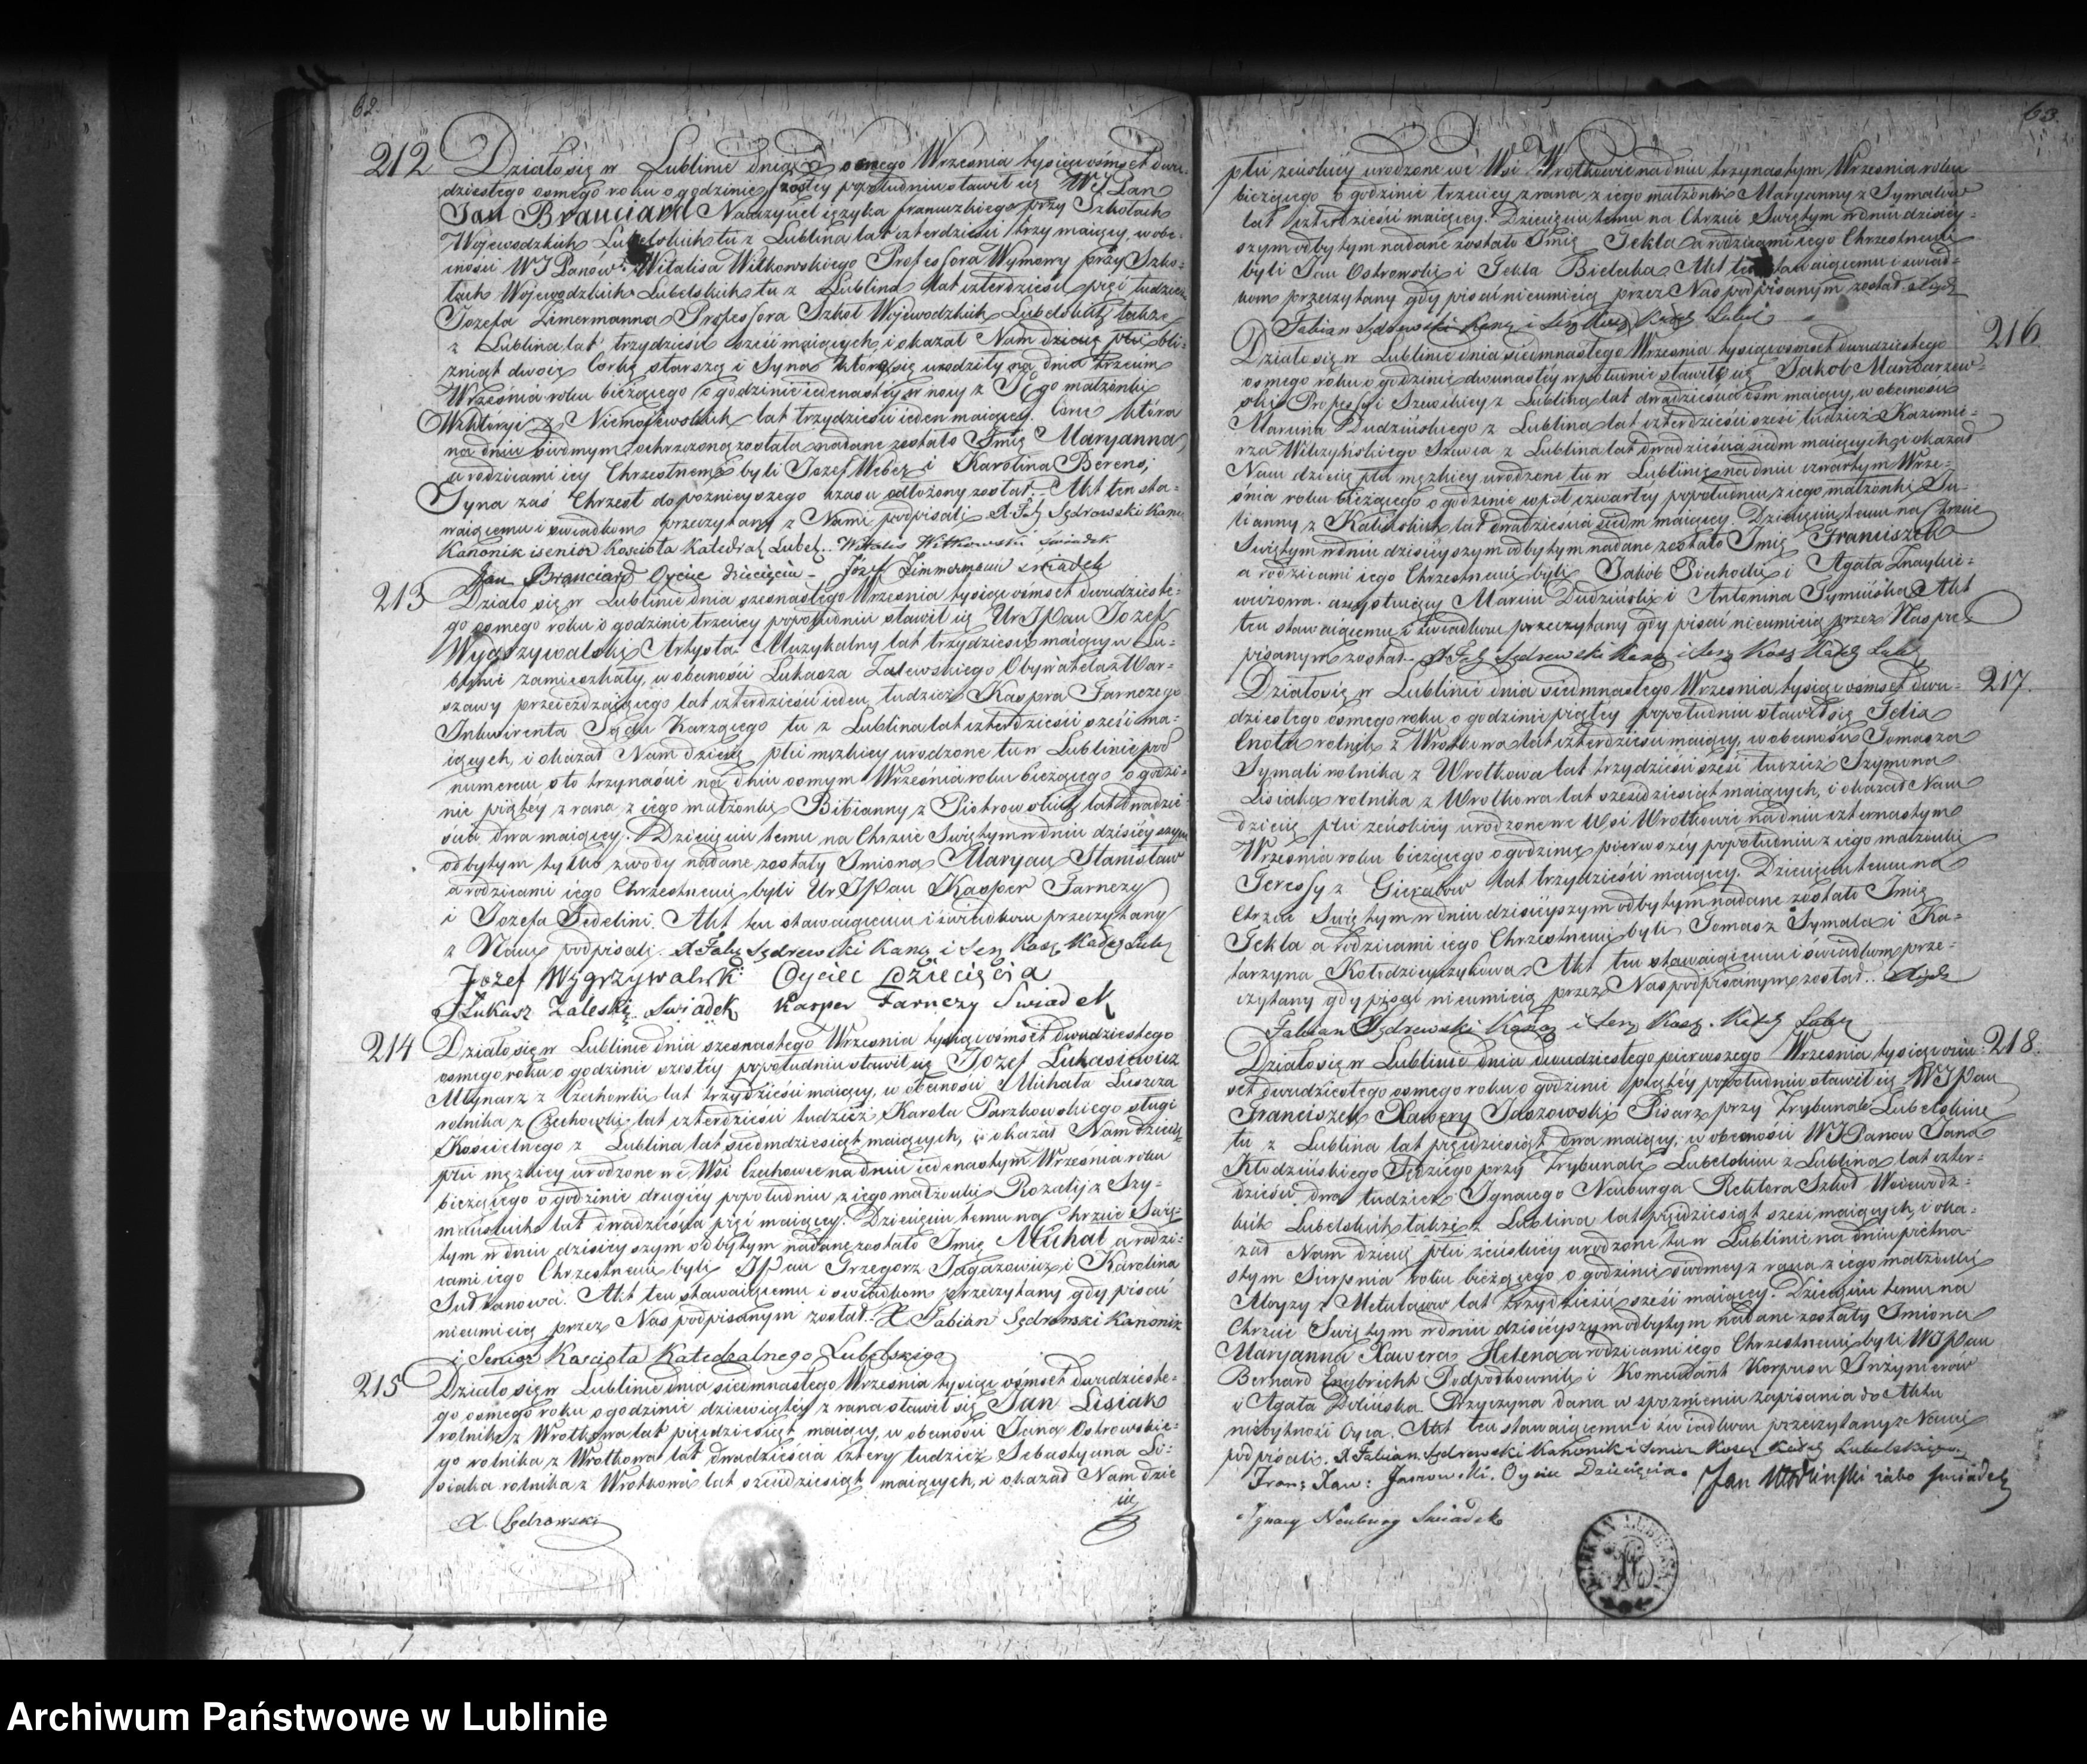 62.
212 Działo się w Lublinie dnia ósmego Września tysiąc ośmset dwu-
dziestego osmego roku o godzinie szostey popołudniu stawił się WJPan
Jan Branciard Nauczyciel ięzyka francuzkiego przy Szkołach
Woiewodzkich Lubelskich tu z Lublina lat czterdzieści trzy maiący, w obe-
cności WJPanów Witalisa Witkowskiego Professora Wymowy przy Szko-
łach Wojewodzkich Lubelskich tu z Lublina lat czterdzieści pięć tudzież
Jozefa Zimermanna Professora Szkoł Wojewodzkich Lubelskich także
z Lublina lat trzydzieści sześć maiących, i okazał Nam dziecię płci bli-
zniąt dwoie Corkę starszą i Syna którę się urodziły na dniu trzecim
Września roku bieżącego o godzinie iedenastey w nocy z Jego małżonki
Wiktoryi z Niemoiewskich lat trzydzieści ieden maiącey. Corce która
na dniu siodmym ochrzczoną została nadane zostało Imię Maryanna,
a rodzicami iey Chrzestnemi byli Jozef Weber i Karolina Berens;
Syna zaś Chrzest do poznieyszego czasu odłożony został. Akt ten sta-
waiącemu i swiadkom przeczytany z Nami podpisali X. Fab. Sędrowski Kan.
Kanonik i senior Kościoła Katedral. Lubel. Witalis Witkowski świadek
Jan Branciard Oyciec dziecięcia - Józef Zimmermann świadek
213 Działo się w Lublinie dnia szesnastego Września tysiąc ośmset dwudzieste-
go osmego roku o godzinie trzeciey popołudniu stawił się UrJPan Jozef
Węgrzywalski Artysta Muzykalny lat trzydzieści maiący w Lu-
blinie zamieszkały, w obecności Łukasza Zalewskiego Obywatela z War-
szawy przeieżdzaiącego lat czterdzieści ieden, tudzież Kaspra Farnezego
Inkwirenta Sądu Karzącego tu z Lublina lat czterdzieści sześć ma-
iących, i okazał Nam dziecię płci męzkiey urodzone tu w Lublinie pod
numerem sto trzynaście na dniu osmym Września roku bieżącego o godzi-
nie piątey z rana z iego małżonki Bibianny z Piotrowskich lat dwadzie-
ścia dwa maiącey. Dziecięciu temu na Chrzcie Swiętym w dniu dzisieyszym
odbytym tylko z wody nadane zostały Imiona Maryan Stanisław
a rodzicami iego Chrzestnemi byli UrJPan Kasper Farnezy
i Jozefa Fedelini. Akt ten stawaiącemu i świadkom przeczytany
z Nami podpisali. X Fab. Sędrowski Kano. i Sen. Kosc. Kated. Lubel.
Józef Węgrzywalski Oyciec Dziecięcia
Łukasz Zaleski Swiadek Kasper Farnezy Swiadek
214 Działo się w Lublinie dnia szesnastego Września tysiąc ośmset dwudziestego
osmego roku o godzinie szostey popołudniu stawił się Jozef Łukasiewicz
Młynarz z Czechowki lat trzydzieści maiący, w obecności Michała Luszcza
rolnika z Czechowki lat czterdzieści tudzież Karola Parzkowskiego sługi
Kościelnego z Lublina lat siedmdziesiąt maiących, i okazał Nam dziecię
płci męzkiey urodzone we Wsi Czechowce na dniu iedenastym Września roku
bieżącego o godzinie drugiey popołudniu z iego małżonki Rozalij z Szy-
mańskich lat dwadzieścia pięć maiącey. Dziecięciu temu na Chrzcie Świę-
tym w dniu dzisieyszym odbytym nadane zostało Imię Michał a rodzi-
cami iego Chrzestnemi byli JPan Grzegorz Jagazowicz i Karolina
Sudkanowa. Akt ten stawaiącemu i swiadkom przeczytany gdy pisać
nieumieią przez Nas podpisanym został. X Fabian Sędrowski Kanonik
i Senior Kościoła Katedralnego Lubelskiego
215 Działo się w Lublinie dnia siedmnastego Września tysiąc ośmset dwudzieste-
go osmego roku o godzinie dziewiątey z rana stawił się Jan Lisiak
rolnik z Wrotkowa lat pięćdziesiąt maiący, w obecności Jana Ostrowskie-
go rolnika z Wrotkowa lat dwadzieścia cztery tudzież Sebastyana Li-
siaka rolnika z Wrotkowa lat sześćdziesiąt maiących, i okazał Nam dzie-
cię
X. Sędrowski
63.
płci żeńskiey urodzone we Wsi Wrotkowie na dniu trzynastym Września roku
bieżącego o godzinie trzeciey z rana z iego małżonki Maryanny z Symałów
lat czterdzieści maiącey. Dziecięciu temu na Chrzcie Swiętym w dniu dzisiey-
szym odbytym nadane zostało Imię Tekla a rodzicami iego Chrzestnemi
byli Jan Ostrowski i Tekla Bielaka. Akt ten stawaiącemu i swiad-
kom przeczytany gdy pisać nieumieią przez Nas podpisanym został. Xiądz
Fabian Sędrowski Kano. i Sen. Kosc. Kated. Lubel.
216 Działo się w Lublinie dnia siedmnastego Września tysiąc ośmset dwudziestego
osmego roku o godzinie dwunastey w południe stawił się Jakob Mundarzew-
ski Professyi Szewskiey z Lublina lat dwadzieścia ośm maiący, w obecności
Marcina Dudzińskiego z Lublina lat czterdzieści sześć tudzież Kazimie-
rza Wilczyńskiego Szewca z Lublina lat dwadzieścia siedm maiących, i okazał
Nam dziecię płci męzkiey urodzone tu w Lublinie na dniu czwartym Wrze-
śnia roku bieżącego o godzinie wpół czwartey popołudniu z iego małżonki Ju-
lianny z Kalińskich lat dwadzieścia siedm maiącey. Dziecięciu temu na Chrzcie
Swiętym w dniu dzisieyszym odbytym nadane zostało Imię Franciszek
a rodzicami iego Chrzestnemi byli Jakób Siechocki i Agata Znaykie-
wiczowa. assystuiący Marcin Dudziński i Antonina Tymińska. Akt
ten stawaiącemu i świadkom przeczytany gdy pisać nieumieią przez Nas pod-
pisanym został. X Fab. Sędrowski Kano. i Sen. Kosc. Kated. Lubel.
217. Działo się w Lublinie dnia siedmnastego Września tysiąc ośmset dwu-
dziestego osmego roku o godzinie piątey popołudniu stawił się Felix
Cnota rolnik z Wrotkowa lat czterdzieści maiący, w obecności Tomasza
Symali rolnika z Wrotkowa lat trzydzieści sześć tudzież Szymona
Lisiaka rolnika z Wrotkowa lat sześćdziesiąt maiących, i okazał Nam
dziecię płci żeńskiey urodzone we Wsi Wrotkowie na dniu czternastym
Września roku bieżącego o godzinie pierwszey popołudniu z iego małżonki
Teressy z Gierałow lat trzydzieści maiącey. Dziecięciu temu na
Chrzcie Swiętym w dniu dzisieyszym odbytym nadane zostało Imię
Tekla a rodzicami iego Chrzestnemi byli Tomasz Symala i Ka-
tarzyna Kołodzieyczykowa. Akt ten stawaiącemu i świadkom prze-
czytany gdy pisać nieumieią przez Nas podpisanym został. Xiądz
Fabian Sędrowski Kano. i Sen. Kosc. Kated. Lubel.
218. Działo się w Lublinie dnia dwudziestego pierwszego Września tysiąc ośm-
set dwudziestego osmego roku o godzinie piątey popołudniu stawił się WJPan
Franciszek Xawery Jaszowski Pisarz przy Trybunale Lubelskim
tu z Lublina lat pięćdziesiąt dwa maiący, w obecności WJPanow Jana
Kłodzińskiego Sędziego przy Trybunale Lubelskim z Lublina lat czter-
dzieści dwa tudzież Ignacego Neuburga Rektora Szkoł Woiewodz-
kich Lubelskich także z Lublina lat pięćdziesiąt sześć maiących, i oka-
zał Nam dziecię płci żeńskiey urodzone tu w Lublinie na dniu piętna-
stym Sierpnia roku bieżącego o godzinie siodmey z rana z iego małżonki
Aloyzy z Metulaw lat trzydzieści sześć maiącey. Dziecięciu temu na
Chrzcie Swiętym w dniu dzisieyszym odbytym nadane zostały Imiona
Maryanna Xawera Helena a rodzicami iego Chrzestnemi byli WJPan
Bernard Engbricht Podpółkownik i Komendant Korpusu Inżynierów
i Agata Dolińska. Przyczyna dana w spoznieniu zapisania do Aktu
niebytność Oyca. Akt ten stawaiącemu i świadkom przeczytany z Nami
podpisali. X Fabian Sędrowski Kanonik i Senior Kosc. Kated. Lubelskiego
Fran: Xaw: Jaszowski. Oyciec Dziecięcia. Jan Kłodziński iako świadek
Ignacy Neuburg Swiadek
Archiwum Państwowe w Lublinie